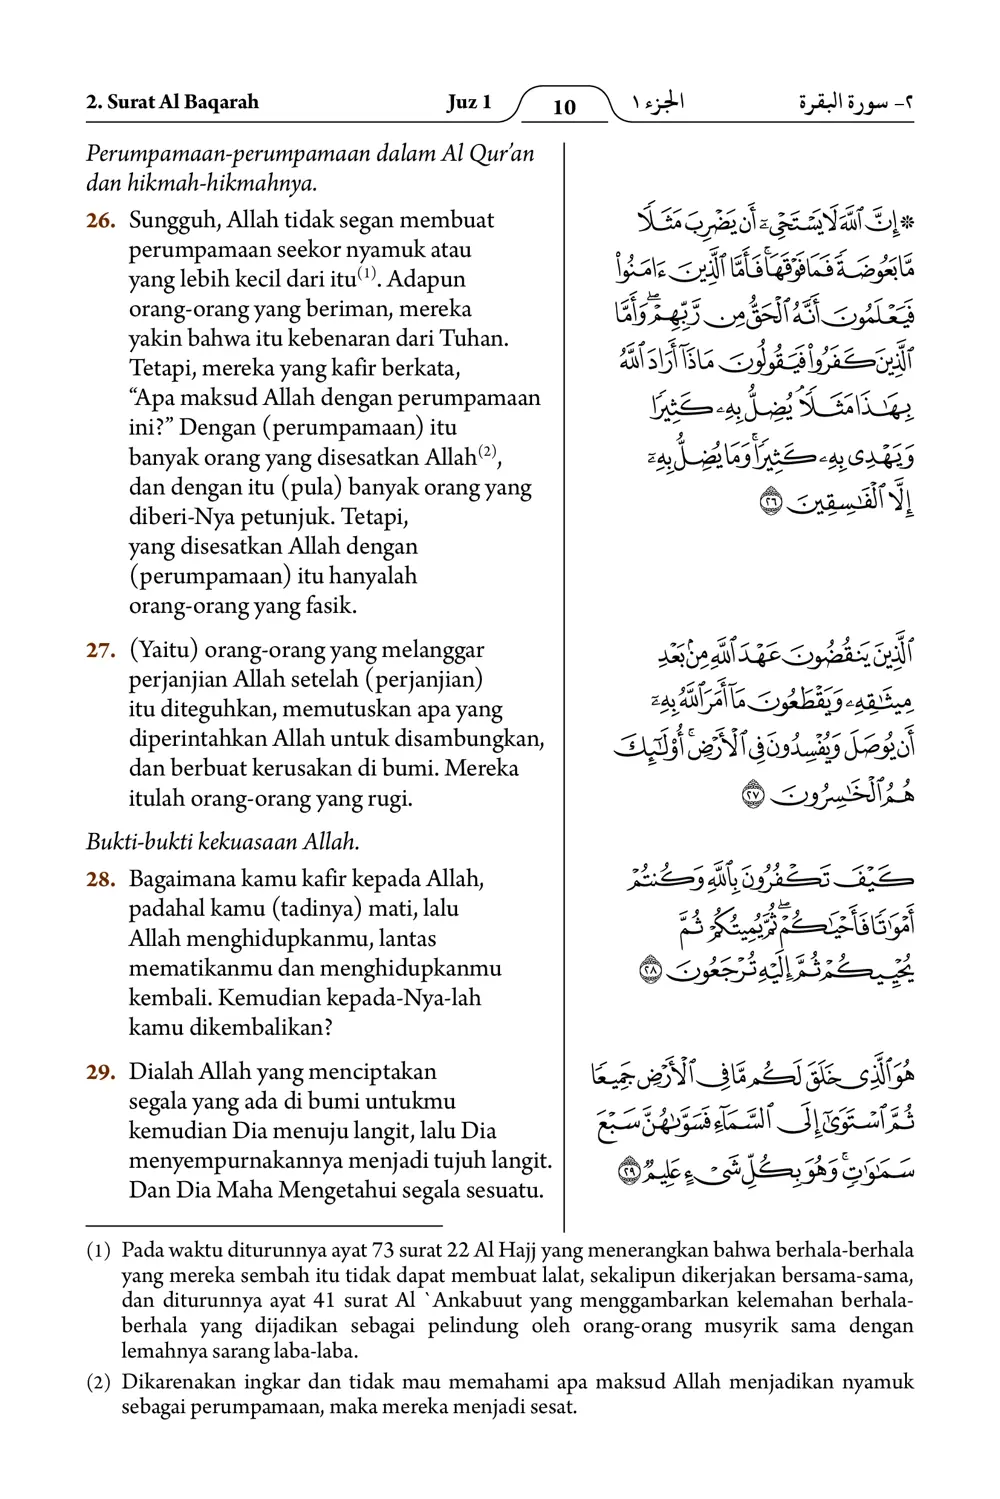 2. Surat Al Baqarah Juz 1 10 الجزء ١ ٢- سورة البقرة
Perumpamaan-perumpamaan dalam Al Qur’an
dan hikmah-hikmahnya.
26. Sungguh, Allah tidak segan membuat
perumpamaan seekor nyamuk atau
yang lebih kecil dari itu(1). Adapun
orang-orang yang beriman, mereka
yakin bahwa itu kebenaran dari Tuhan.
Tetapi, mereka yang kafir berkata,
“Apa maksud Allah dengan perumpamaan
ini?” Dengan (perumpamaan) itu
banyak orang yang disesatkan Allah(2),
dan dengan itu (pula) banyak orang yang
diberi-Nya petunjuk. Tetapi,
yang disesatkan Allah dengan
(perumpamaan) itu hanyalah
orang-orang yang fasik.
۞ إِنَّ ٱللَّهَ لَا يَسْتَحْىِۦٓ أَن يَضْرِبَ مَثَلًا
مَّا بَعُوضَةً فَمَا فَوْقَهَا ۚ فَأَمَّا ٱلَّذِينَ ءَامَنُوا۟
فَيَعْلَمُونَ أَنَّهُ ٱلْحَقُّ مِن رَّبِّهِمْ ۖ وَأَمَّا
ٱلَّذِينَ كَفَرُوا۟ فَيَقُولُونَ مَاذَآ أَرَادَ ٱللَّهُ
بِهَـٰذَا مَثَلًا ۘ يُضِلُّ بِهِۦ كَثِيرًا
وَيَهْدِى بِهِۦ كَثِيرًا ۚ وَمَا يُضِلُّ بِهِۦٓ
إِلَّا ٱلْفَـٰسِقِينَ ٢٦
27. (Yaitu) orang-orang yang melanggar
perjanjian Allah setelah (perjanjian)
itu diteguhkan, memutuskan apa yang
diperintahkan Allah untuk disambungkan,
dan berbuat kerusakan di bumi. Mereka
itulah orang-orang yang rugi.
ٱلَّذِينَ يَنقُضُونَ عَهْدَ ٱللَّهِ مِنۢ بَعْدِ
مِيثَـٰقِهِۦ وَيَقْطَعُونَ مَآ أَمَرَ ٱللَّهُ بِهِۦٓ
أَن يُوصَلَ وَيُفْسِدُونَ فِى ٱلْأَرْضِ ۚ أُو۟لَـٰٓئِكَ
هُمُ ٱلْخَـٰسِرُونَ ٢٧
Bukti-bukti kekuasaan Allah.
28. Bagaimana kamu kafir kepada Allah,
padahal kamu (tadinya) mati, lalu
Allah menghidupkanmu, lantas
mematikanmu dan menghidupkanmu
kembali. Kemudian kepada-Nya-lah
kamu dikembalikan?
كَيْفَ تَكْفُرُونَ بِٱللَّهِ وَكُنتُمْ
أَمْوَٰتًا فَأَحْيَـٰكُمْ ۖ ثُمَّ يُمِيتُكُمْ ثُمَّ
يُحْيِيكُمْ ثُمَّ إِلَيْهِ تُرْجَعُونَ ٢٨
29. Dialah Allah yang menciptakan
segala yang ada di bumi untukmu
kemudian Dia menuju langit, lalu Dia
menyempurnakannya menjadi tujuh langit.
Dan Dia Maha Mengetahui segala sesuatu.
هُوَ ٱلَّذِى خَلَقَ لَكُم مَّا فِى ٱلْأَرْضِ جَمِيعًا
ثُمَّ ٱسْتَوَىٰٓ إِلَى ٱلسَّمَآءِ فَسَوَّىٰهُنَّ سَبْعَ
سَمَـٰوَٰتٍ ۚ وَهُوَ بِكُلِّ شَىْءٍ عَلِيمٌ ٢٩
(1) Pada waktu diturunnya ayat 73 surat 22 Al Hajj yang menerangkan bahwa berhala-berhala
yang mereka sembah itu tidak dapat membuat lalat, sekalipun dikerjakan bersama-sama,
dan diturunnya ayat 41 surat Al `Ankabuut yang menggambarkan kelemahan berhala-
berhala yang dijadikan sebagai pelindung oleh orang-orang musyrik sama dengan
lemahnya sarang laba-laba.
(2) Dikarenakan ingkar dan tidak mau memahami apa maksud Allah menjadikan nyamuk
sebagai perumpamaan, maka mereka menjadi sesat.